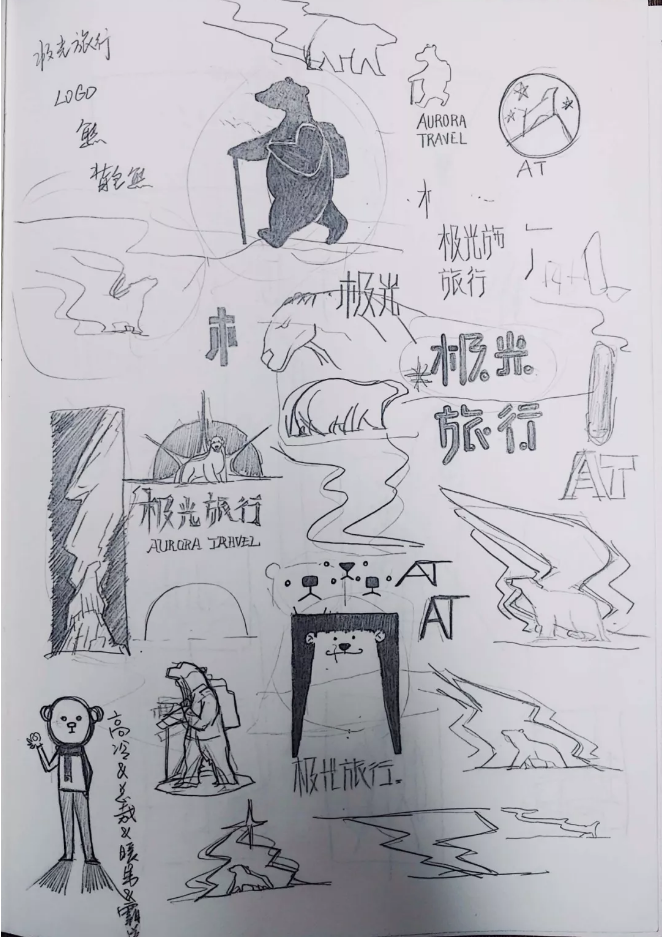 极光旅行
LOGO
熊
背包熊
AURORA
TRAVEL
AT
极光旅
旅行
极光
极光
旅行
AT
极光旅行
AURORA TRAVEL
AT
AT
极光旅行
高冷&总裁&暖男&霸